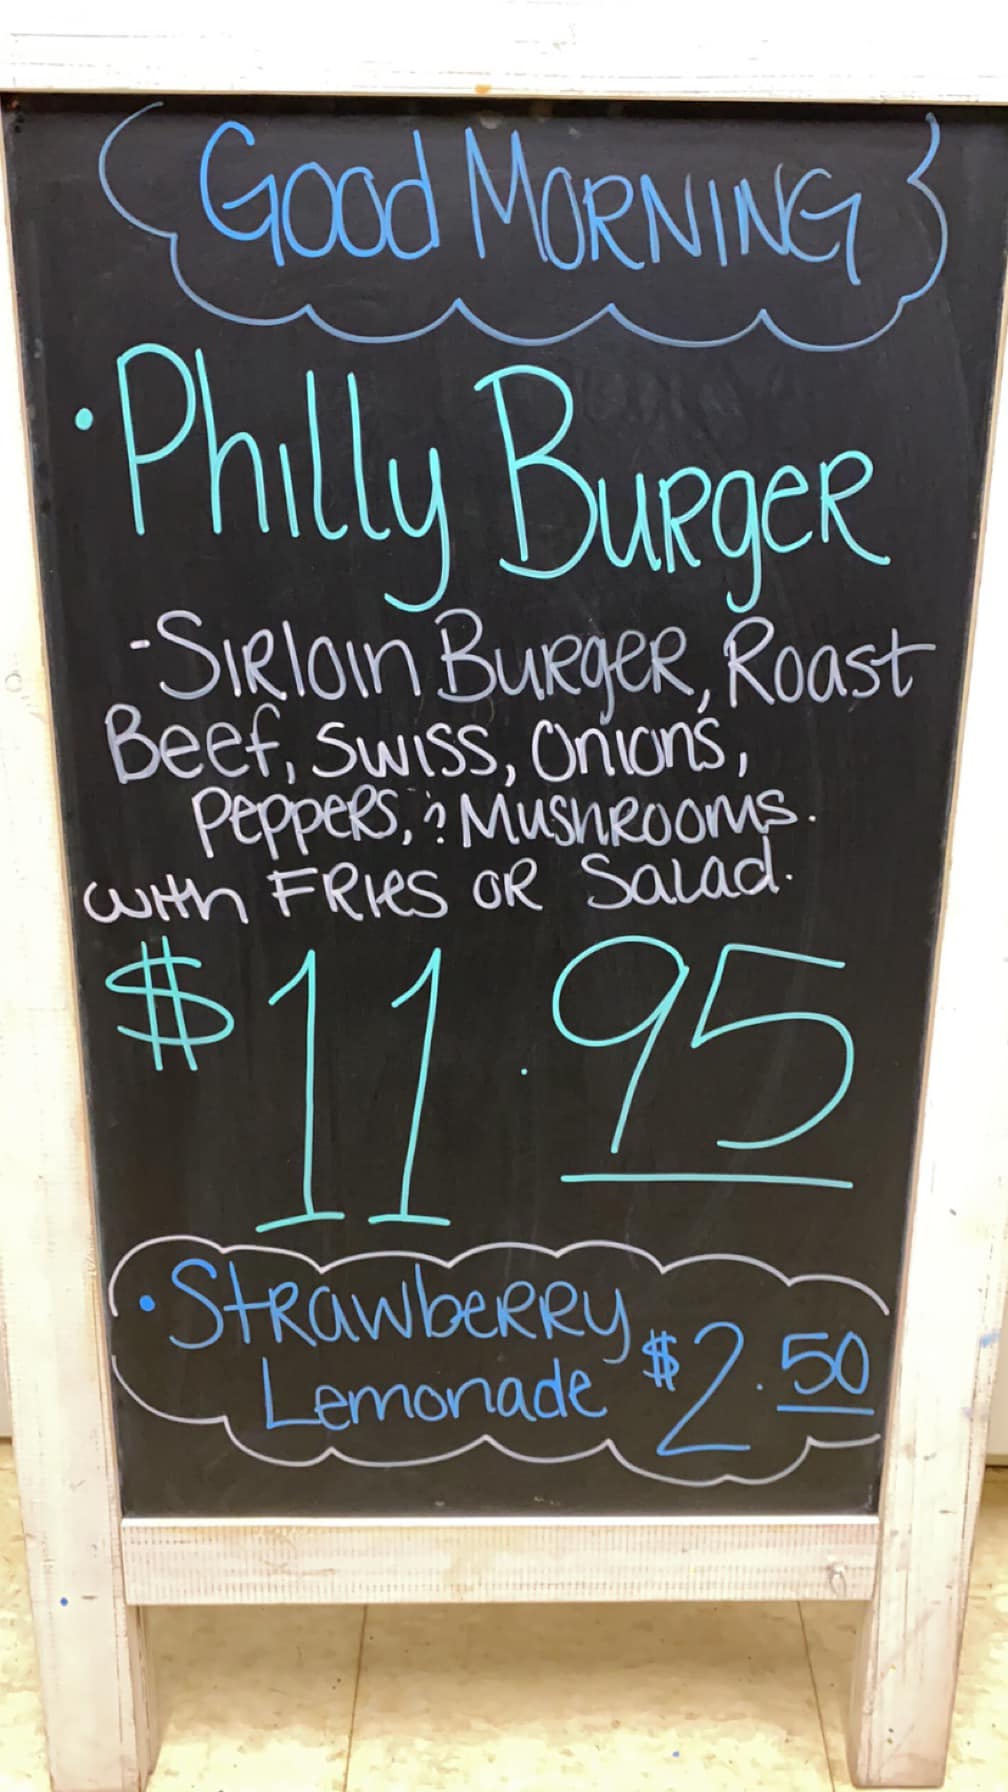 Good MORNING
• Philly BURGER
- SIRloin BURGER, Roast
Beef, SWISS, Onions,
PEPPERS, & MUSHROOMS.
with FRIES OR Salad.
$11.95
• StRawbeRRy
Lemonade $2.50